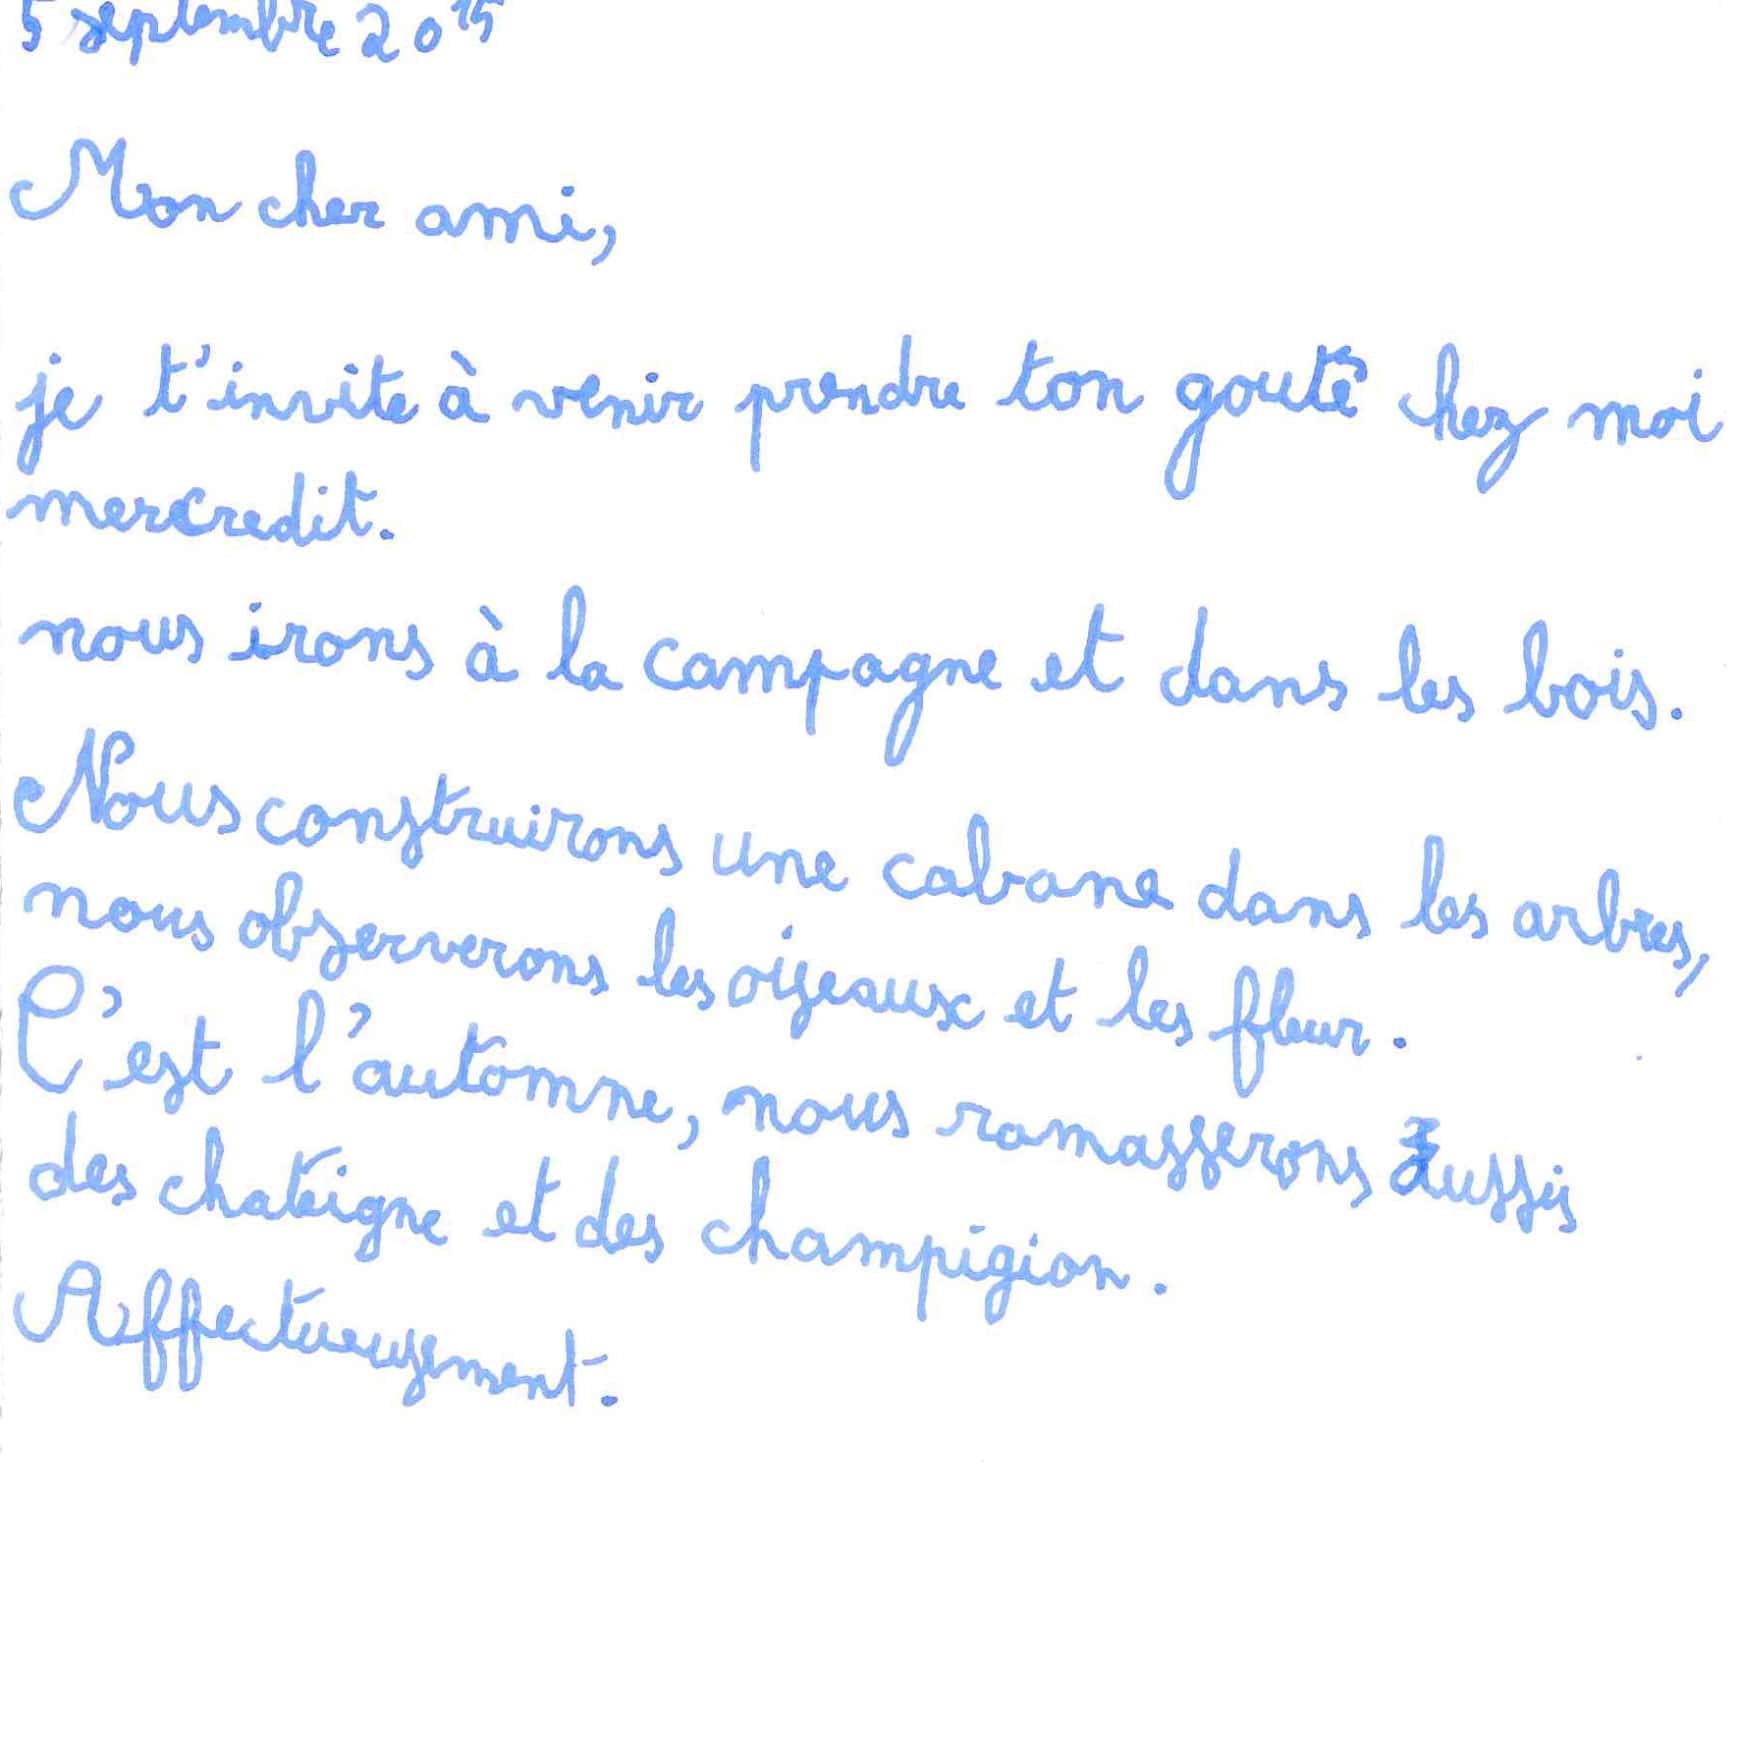 5 septembre 2015
Mon cher ami,
je t'invite à venir prendre ton gouté chez moi
mercredit.
nous irons à la campagne et dans les bois.
Nous construirons une cabane dans les arbres,
nous observerons les oiseaux et les fleur.
C'est l'automne, nous ramasserons aussis
des chateigne et des champigion.
Affectueusement.